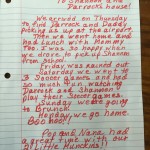 To Shannon and
Parrock's House!
We arrived on Thursday
to find Parrock and Daddy
picking us up at the airport.
Then we went home and
had lunch with Mommy
too. I was so happy when
we drove to pick up Shannon
from school.
Friday was rained out
Saturday we went to
3 Soccer games and had
so much fun watching
Parrock and Shannon
play their Soccer games!
Sunday we are going
to Brunch.
Monday, we go home
Boo Hoo!
Pop and Nana, had a
great time with our
little Munchkins!